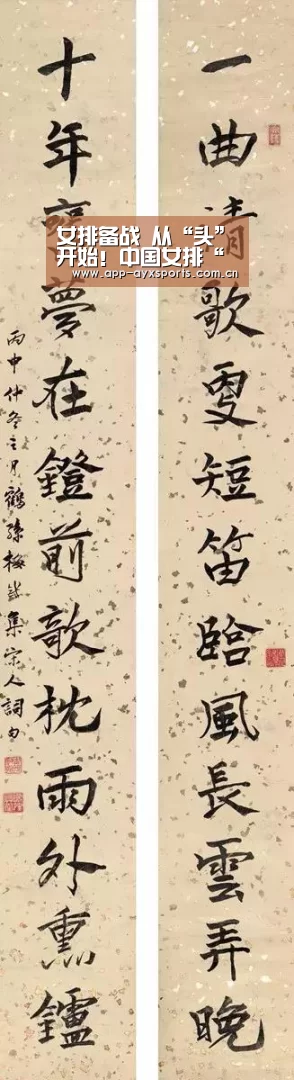 女排备战 从“头”
开始！中国女排“
www.app-ayxsports.com.cn
一曲清歌更短笛臨風長雲弄晚
十年夢在鐙前欹枕雨外熏鑪
丙申仲冬之月鶴孫集宋人詞句